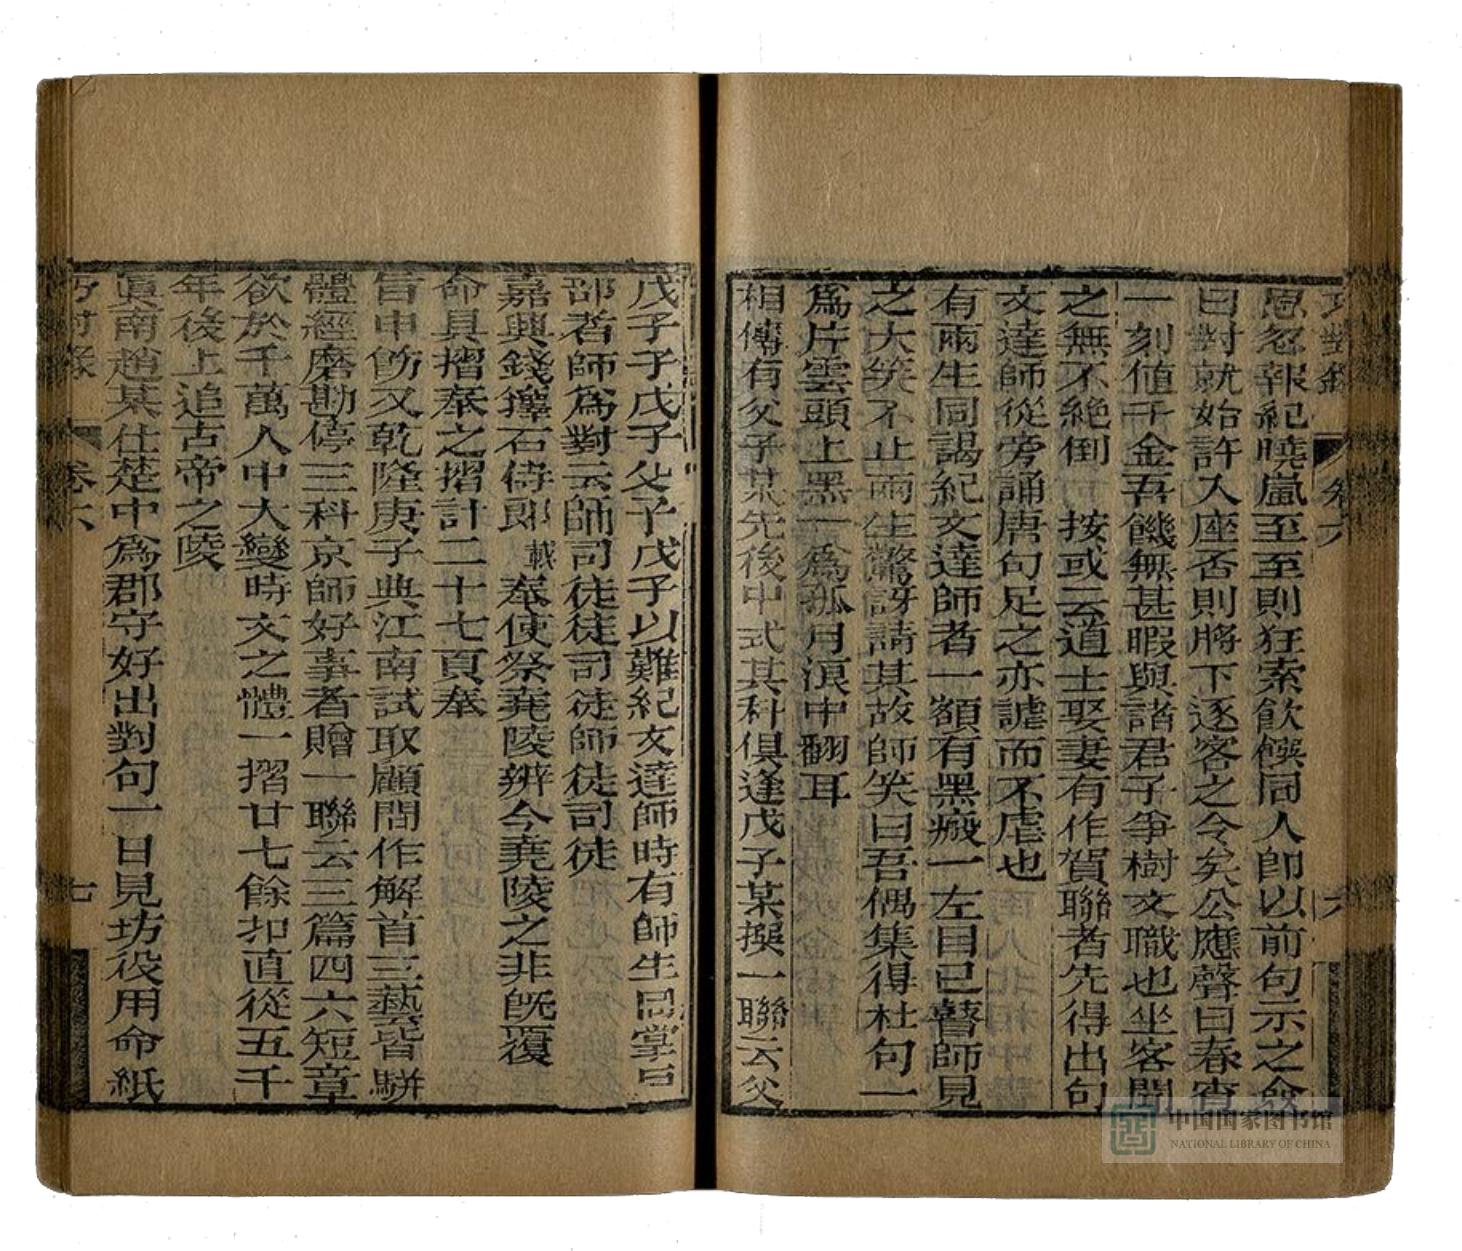 巧對錄 卷六 六
恩忽報紀曉嵐至至則狂索飲饌同人卽以前句示之僉
曰對就始許入座否則將下逐客之令矣公應聲曰春宵
一刻値千金吾饑無甚暇與諸君子爭樹文職也坐客聞
之無不絶倒 按或云道士娶妻有作賀聯者先得出句
文達師從旁誦唐句足之亦謔而不虐也
有兩生同謁紀文達師者一額有黑瘢一左目已瞽師見
之大笑不止兩生驚訝請其故師笑曰吾偶集得杜句一
爲片雲頭上黑一爲孤月浪中翻耳
相傳有父子某先後中式其科俱逢戊子某撰一聯云父
戊子子戊子父子戊子以難紀文達師時有師生同掌戶
部者師爲對云師司徒徒司徒師徒司徒
嘉興錢籜石侍郎載奉使祭堯陵辨今堯陵之非旣覆
命具摺奏之摺計二十七頁奉
旨申飭又乾隆庚子典江南試取顧問作解首三藝皆駢
體經磨勘停三科京師好事者贈一聯云三篇四六短章
欲於千萬人中大變時文之體一摺廿七餘扣直從五千
年後上追古帝之陵
眞南趙某仕楚中爲郡守好出對句一日見坊役用命紙
巧對錄 卷六 七
中国国家图书馆
NATIONAL LIBRARY OF CHINA